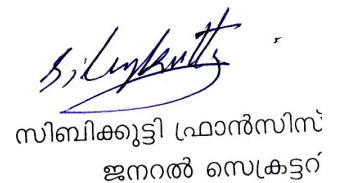 സിബിക്കുട്ടി ഫ്രാൻസിസ്
ജനറൽ സെക്രട്ടറി